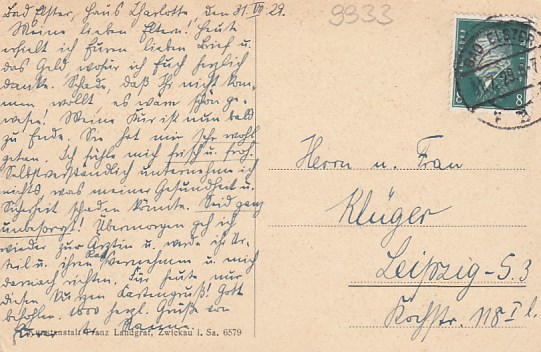 Bad Elster, Haus Charlotte den 31. VII 29.
Meine lieben Eltern! Heute
erhielt ich Euren lieben Brief u.
das Geld, wofür ich Euch herzlich
danke. Schade, daß Ihr nicht kom-
men wollt, es wäre schön ge-
wesen! Meine Kur ist nun bald
zu Ende. Sie hat mir sehr wohl
getan. Ich fühle mich frisch u. froh.
Selbstverständlich unternehme ich
nichts, was meiner Gesundheit u.
Sicherheit schaden könnte. Seid ganz
unbesorgt! Übermorgen geh ich
wieder zur Ärztin u. werde ihr Ur-
teil u. ihren vernehmen u. mich
danach richten. Für heute nur
diesen kurzen Kartengruß! Gott
befohlen. 1000 herzl. Grüße von
Eurer Hanne.
9933
BAD ELSTER
8
Herrn u. Frau
Klüger
Leipzig-S.3
Kochstr. 118 I l.
Kunstanstalt Franz Landgraf, Zwickau i. Sa. 6579